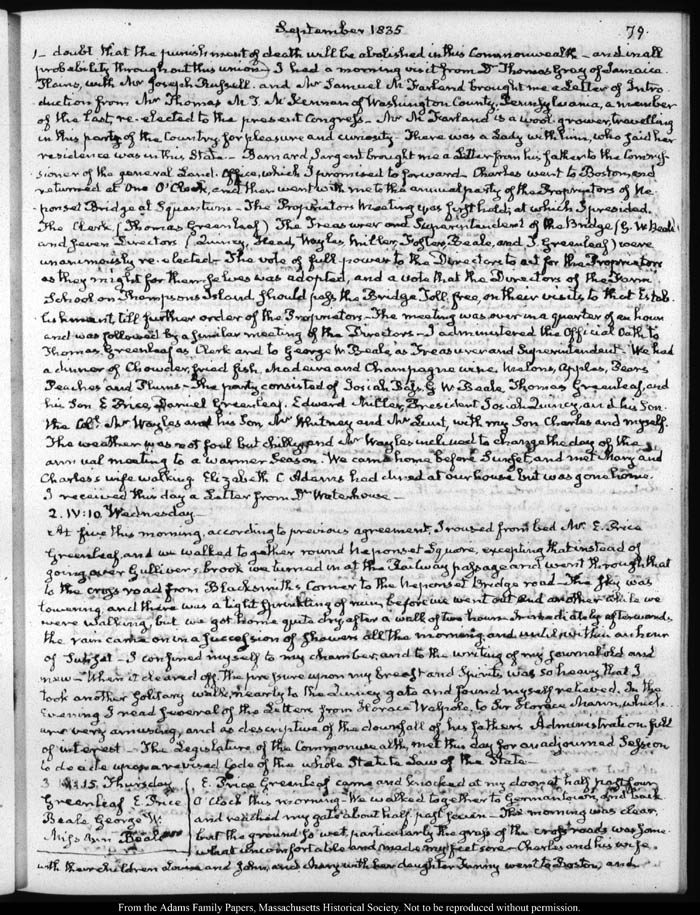 September 1835
79.
doubt that the punishment of death will be abolished in this Commonwealth - and in all
probability throughout this union. I had a morning visit from Dr Thomas Gray of Jamaica
Plains, with Mr Joseph Russell. and Mr Samuel McFarland brought me a Letter of Intro
duction from Mr Thomas M. T. McKennan of Washington County, Pennsylvania, a member
of the last, re-elected to the present Congress. Mr McFarland is a wool-grower, travelling
in this part of the Country for pleasure and curiosity. There was a Lady with him, who said her
residence was in this State - Barnard Sargent brought me a Letter from his father to the Commis
sioner of the general Land Office, which I promised to forward. Charles went to Boston, and
returned at One O'Clock, and then went with me to the annual party of the Proprietors of Ne
ponset Bridge at Squantum - The Proprietors Meeting was first held; at which I presided.
The Clerk (Thomas Greenleaf) The Treasurer and Superintendent of the Bridge (G. W. Beale)
and seven Directors (Quincy, Head, Wayles, Miller, Foster, Beale, and T. Greenleaf) were
unanimously re-elected - The vote of full power to the Directors to act for the Proprietors
as they might for themselves was adopted, and a vote that the Directors of the Farm
School on Thompsons Island, should pass the Bridge Toll free, on their visits to that Estab
lishment till further order of the Proprietors - The meeting was over in a quarter of an hour
and was followed by a similar meeting of the Directors - I administered the Official Oath to
Thomas Greenleaf as Clerk and to George W Beale as Treasurer and Superintendent - We had
a dinner of Chowder, fried fish, Madeira and Champagne wine, Melons, Apples, Pears
Peaches and Plums - The party consisted of Josiah Bass, G W Beale, Thomas Greenleaf, and
his Son E Price, Daniel Greenleaf, Edward Miller, President Josiah Quincy, and his Son
the Coll. Mr Wayles and his Son, Mr Whitney and Mr Lunt, with my Son Charles and myself.
The weather was not foul but chilly, and Mr Wayles inclined to change the day of the
annual meeting to a warmer Season. We came home before Sunset, and met Mary and
Charles's wife walking. Elizabeth C Adams had dined at our house but was gone home.
I received this day a Letter from Dr Waterhouse -
2. IV:10. Wednesday -
At five this morning, according to previous agreement, I roused from bed Mr. E. Price
Greenleaf, and we walked together round Neponset Square, excepting that instead of
going over Gulliver's brook we turned in at the Railway passage and went through that
to the cross road from Blacksmith's Corner to the Neponset Bridge road - The sky was
lowering, and there was a light sprinkling of rain, before we went out and another while we
were walking, but we got home quite dry after a walk of two hours. Immediately afterwards
the rain came on in a succession of showers all the morning, and until within an hour
of Sunset - I confined myself to my chamber, and to the writing of my journal old and
new - When it cleared off, the pressure upon my breast and Spirits was so heavy, that I
took another solitary walk, nearly to the Quincy gate and found myself relieved. In the
Evening I read several of the Letters from Horace Walpole, to Sir Horace Mann, which
are very amusing, and as descriptive of the downfall of his father's Administration, full
of interest - The Legislature of the Commonwealth, met this day for an adjourned Session
to decide upon a revised Code of the whole Statute Law of the State -
3. IV:15. Thursday
Greenleaf E. Price
Beale George W.
Miss Ann Beale
E. Price Greenleaf came and knocked at my door, at half past four
O'Clock this morning - We walked together to Germantown, and back
and reached my gate about half past seven - The morning was clear,
but the ground so wet, particularly the grass of the cross roads was some
what uncomfortable and made my feet sore - Charles and his wife,
with their children Louisa and John, and Mary with her daughter Fanny went to Boston, and
From the Adams Family Papers, Massachusetts Historical Society. Not to be reproduced without permission.